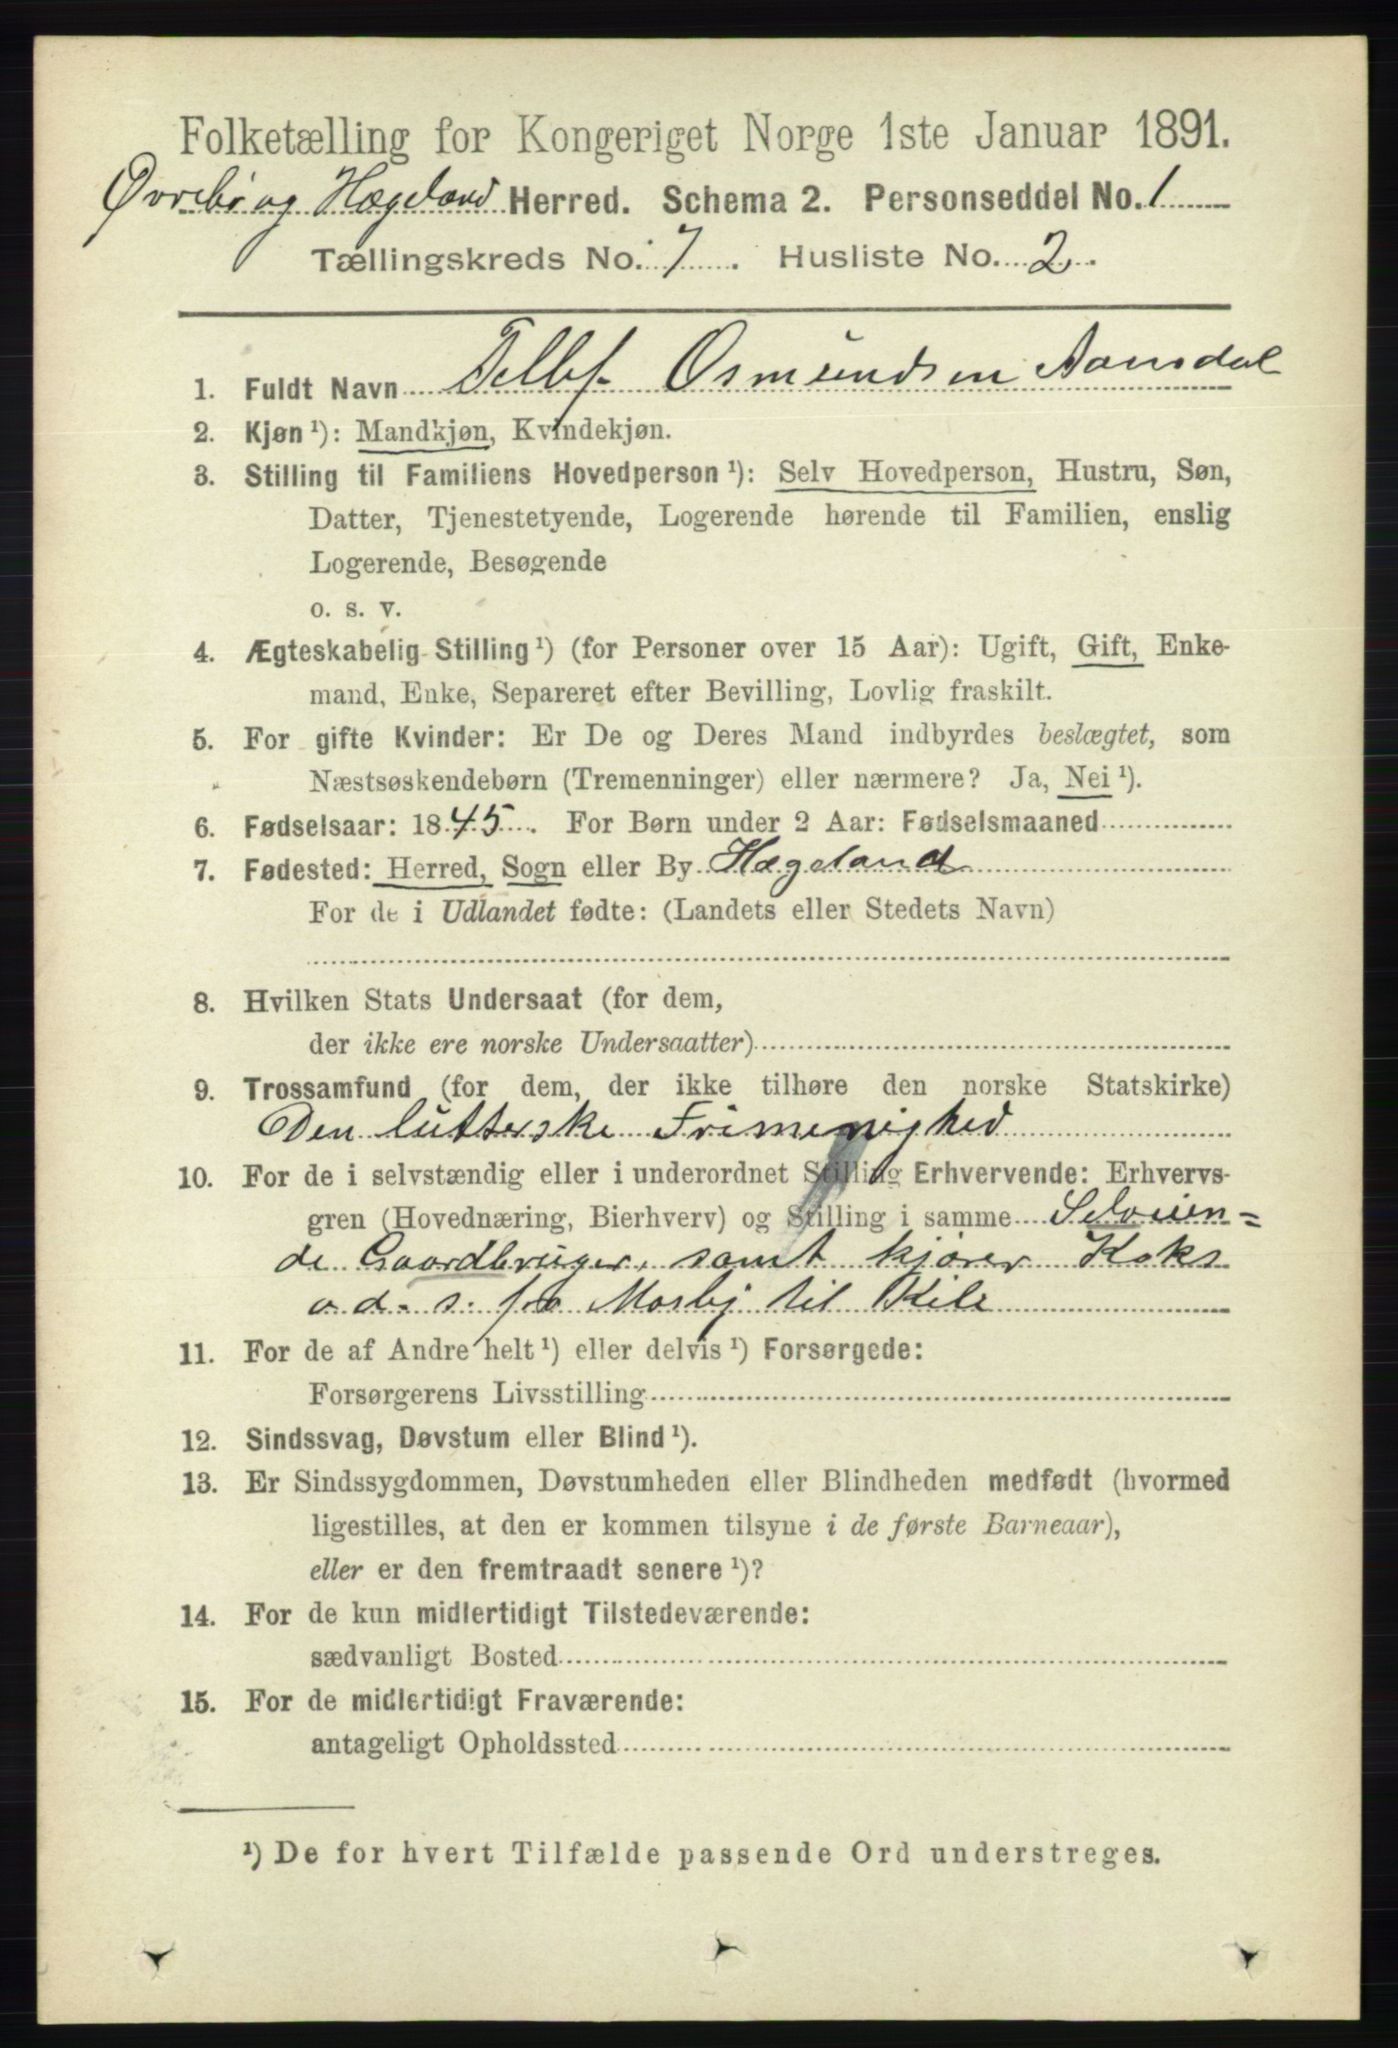 Folketælling for Kongeriget Norge 1ste Januar 1891.
Øvrebø og Hægeland Herred. Schema 2. Personseddel No. 1
Tællingskreds No. 7. Husliste No. 2.
1. Fuldt Navn Tellef Osmundsen Aamdal
2. Kjøn ¹): Mandkjøn, Kvindekjøn.
3. Stilling til Familiens Hovedperson ¹): Selv Hovedperson, Hustru, Søn,
Datter, Tjenestetyende, Logerende hørende til Familien, enslig
Logerende, Besøgende
o. s. v.
4. Ægteskabelig Stilling ¹) (for Personer over 15 Aar): Ugift, Gift, Enke-
mand, Enke, Separeret efter Bevilling, Lovlig fraskilt.
5. For gifte Kvinder: Er De og Deres Mand indbyrdes beslægtet, som
Næstsøskendebørn (Tremenninger) eller nærmere? Ja, Nei ¹).
6. Fødselsaar: 1845. For Børn under 2 Aar: Fødselsmaaned
7. Fødested: Herred, Sogn eller By Hægeland
For de i Udlandet fødte: (Landets eller Stedets Navn)
8. Hvilken Stats Undersaat (for dem,
der ikke ere norske Undersaatter)
9. Trossamfund (for dem, der ikke tilhøre den norske Statskirke)
Den lutterske Frimenighed
10. For de i selvstændig eller i underordnet Stilling Erhvervende: Erhvervs-
gren (Hovednæring, Bierhverv) og Stilling i samme Selveien=
de Gaardbruger, samt kjører Koks
o. d. s. fra Mosby til Kile
11. For de af Andre helt ¹) eller delvis ¹) Forsørgede:
Forsørgerens Livsstilling
12. Sindssvag, Døvstum eller Blind ¹).
13. Er Sindssygdommen, Døvstumheden eller Blindheden medfødt (hvormed
ligestilles, at den er kommen tilsyne i de første Barneaar),
eller er den fremtraadt senere ¹)?
14. For de kun midlertidigt Tilstedeværende:
sædvanligt Bosted
15. For de midlertidigt Fraværende:
antageligt Opholdssted
¹) De for hvert Tilfælde passende Ord understreges.